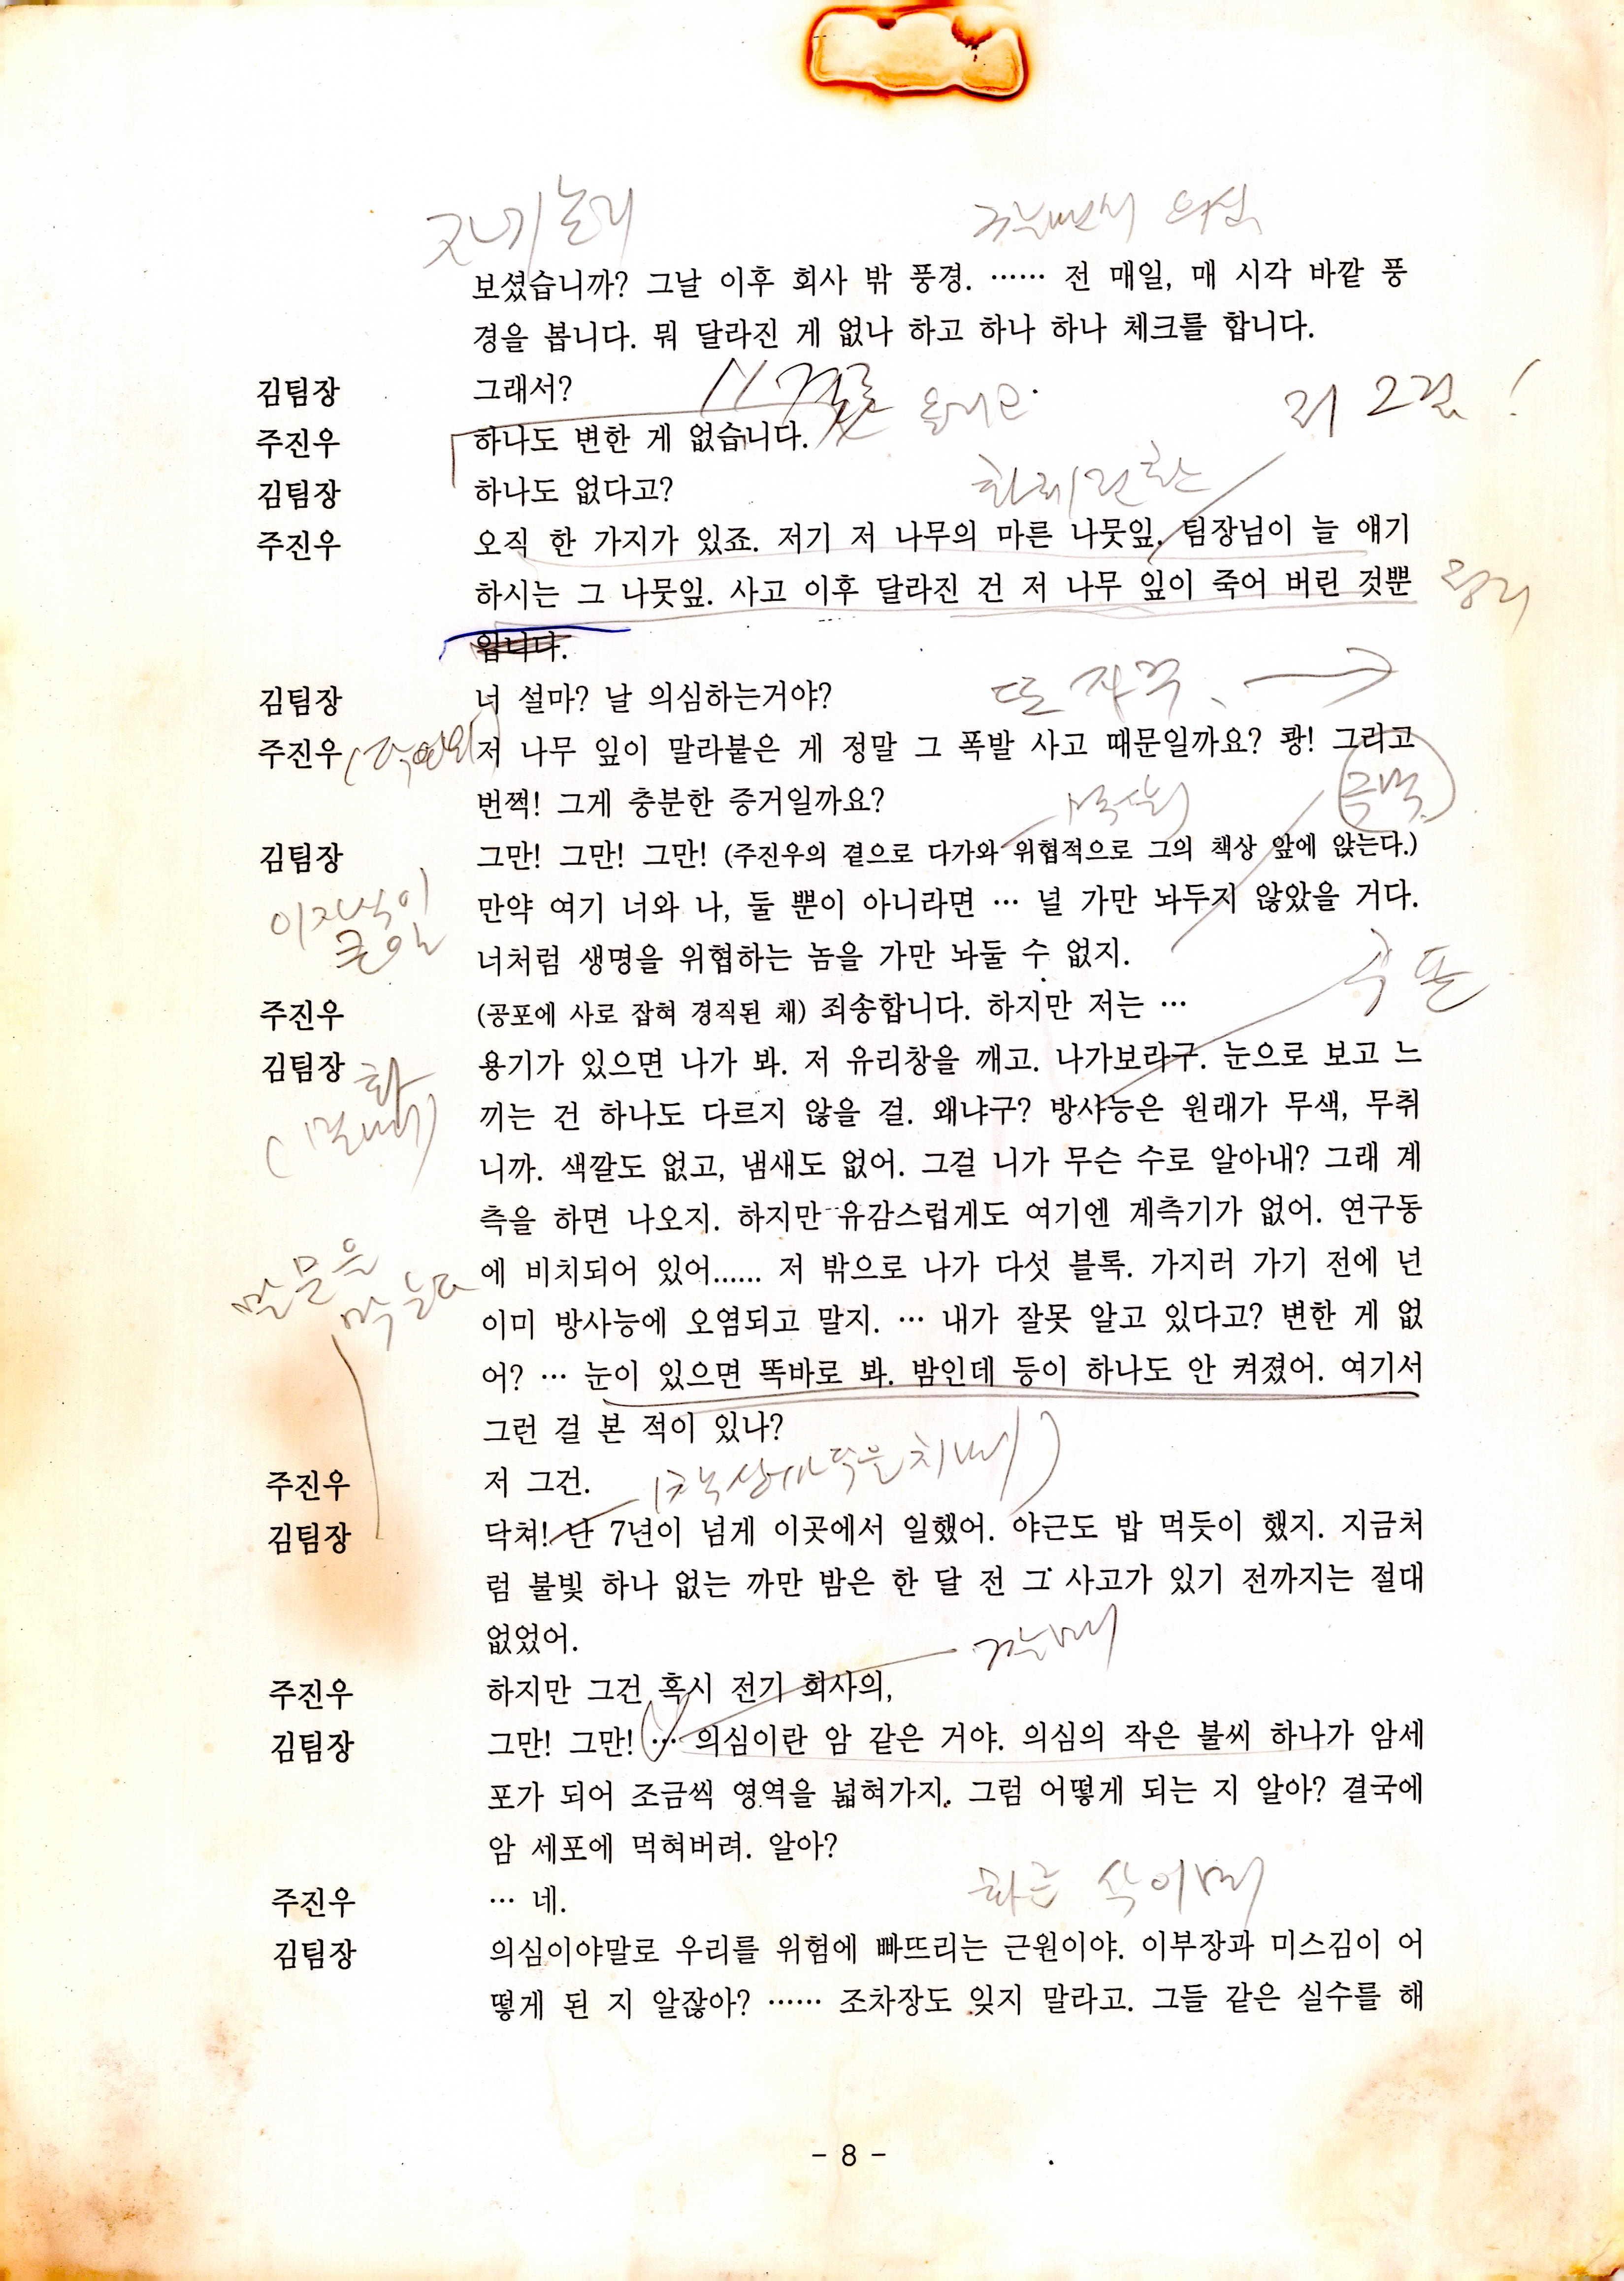 자기논리
보셨습니까? 그날 이후 회사 밖 풍경. …… 전 매일, 매 시각 바깥 풍
경을 봅니다. 뭐 달라진 게 없나 하고 하나 하나 체크를 합니다.
김팀장 그래서?
주진우 하나도 변한 게 없습니다.
김팀장 하나도 없다고?
화제전환
주진우 오직 한 가지가 있죠. 저기 저 나무의 마른 나뭇잎. 팀장님이 늘 얘기
하시는 그 나뭇잎. 사고 이후 달라진 건 저 나무 잎이 죽어 버린 것뿐
입니다.
김팀장 너 설마? 날 의심하는거야?
주진우 저 나무 잎이 말라붙은 게 정말 그 폭발 사고 때문일까요? 쾅! 그리고
번쩍! 그게 충분한 증거일까요?
김팀장 그만! 그만! 그만! (주진우의 곁으로 다가와 위협적으로 그의 책상 앞에 앉는다.)
이자식이
만약 여기 너와 나, 둘 뿐이 아니라면 … 널 가만 놔두지 않았을 거다.
너처럼 생명을 위협하는 놈을 가만 놔둘 수 없지.
주진우 (공포에 사로 잡혀 경직된 채) 죄송합니다. 하지만 저는 …
김팀장 용기가 있으면 나가 봐. 저 유리창을 깨고. 나가보라구. 눈으로 보고 느
끼는 건 하나도 다르지 않을 걸. 왜냐구? 방사능은 원래가 무색, 무취
니까. 색깔도 없고, 냄새도 없어. 그걸 니가 무슨 수로 알아내? 그래 계
측을 하면 나오지. 하지만 유감스럽게도 여기엔 계측기가 없어. 연구동
말문을
막는다
에 비치되어 있어...... 저 밖으로 나가 다섯 블록. 가지러 가기 전에 넌
이미 방사능에 오염되고 말지. … 내가 잘못 알고 있다고? 변한 게 없
어? … 눈이 있으면 똑바로 봐. 밤인데 등이 하나도 안 켜졌어. 여기서
그런 걸 본 적이 있나?
주진우 저 그건.
김팀장 닥쳐! 난 7년이 넘게 이곳에서 일했어. 야근도 밥 먹듯이 했지. 지금처
럼 불빛 하나 없는 까만 밤은 한 달 전 그 사고가 있기 전까지는 절대
없었어.
주진우 하지만 그건 혹시 전기 회사의,
김팀장 그만! 그만! … 의심이란 암 같은 거야. 의심의 작은 불씨 하나가 암세
포가 되어 조금씩 영역을 넓혀가지. 그럼 어떻게 되는 지 알아? 결국에
암 세포에 먹혀버려. 알아?
주진우 … 네.
김팀장 의심이야말로 우리를 위험에 빠뜨리는 근원이야. 이부장과 미스김이 어
떻게 된 지 알잖아? …… 조차장도 잊지 말라고. 그들 같은 실수를 해
- 8 -